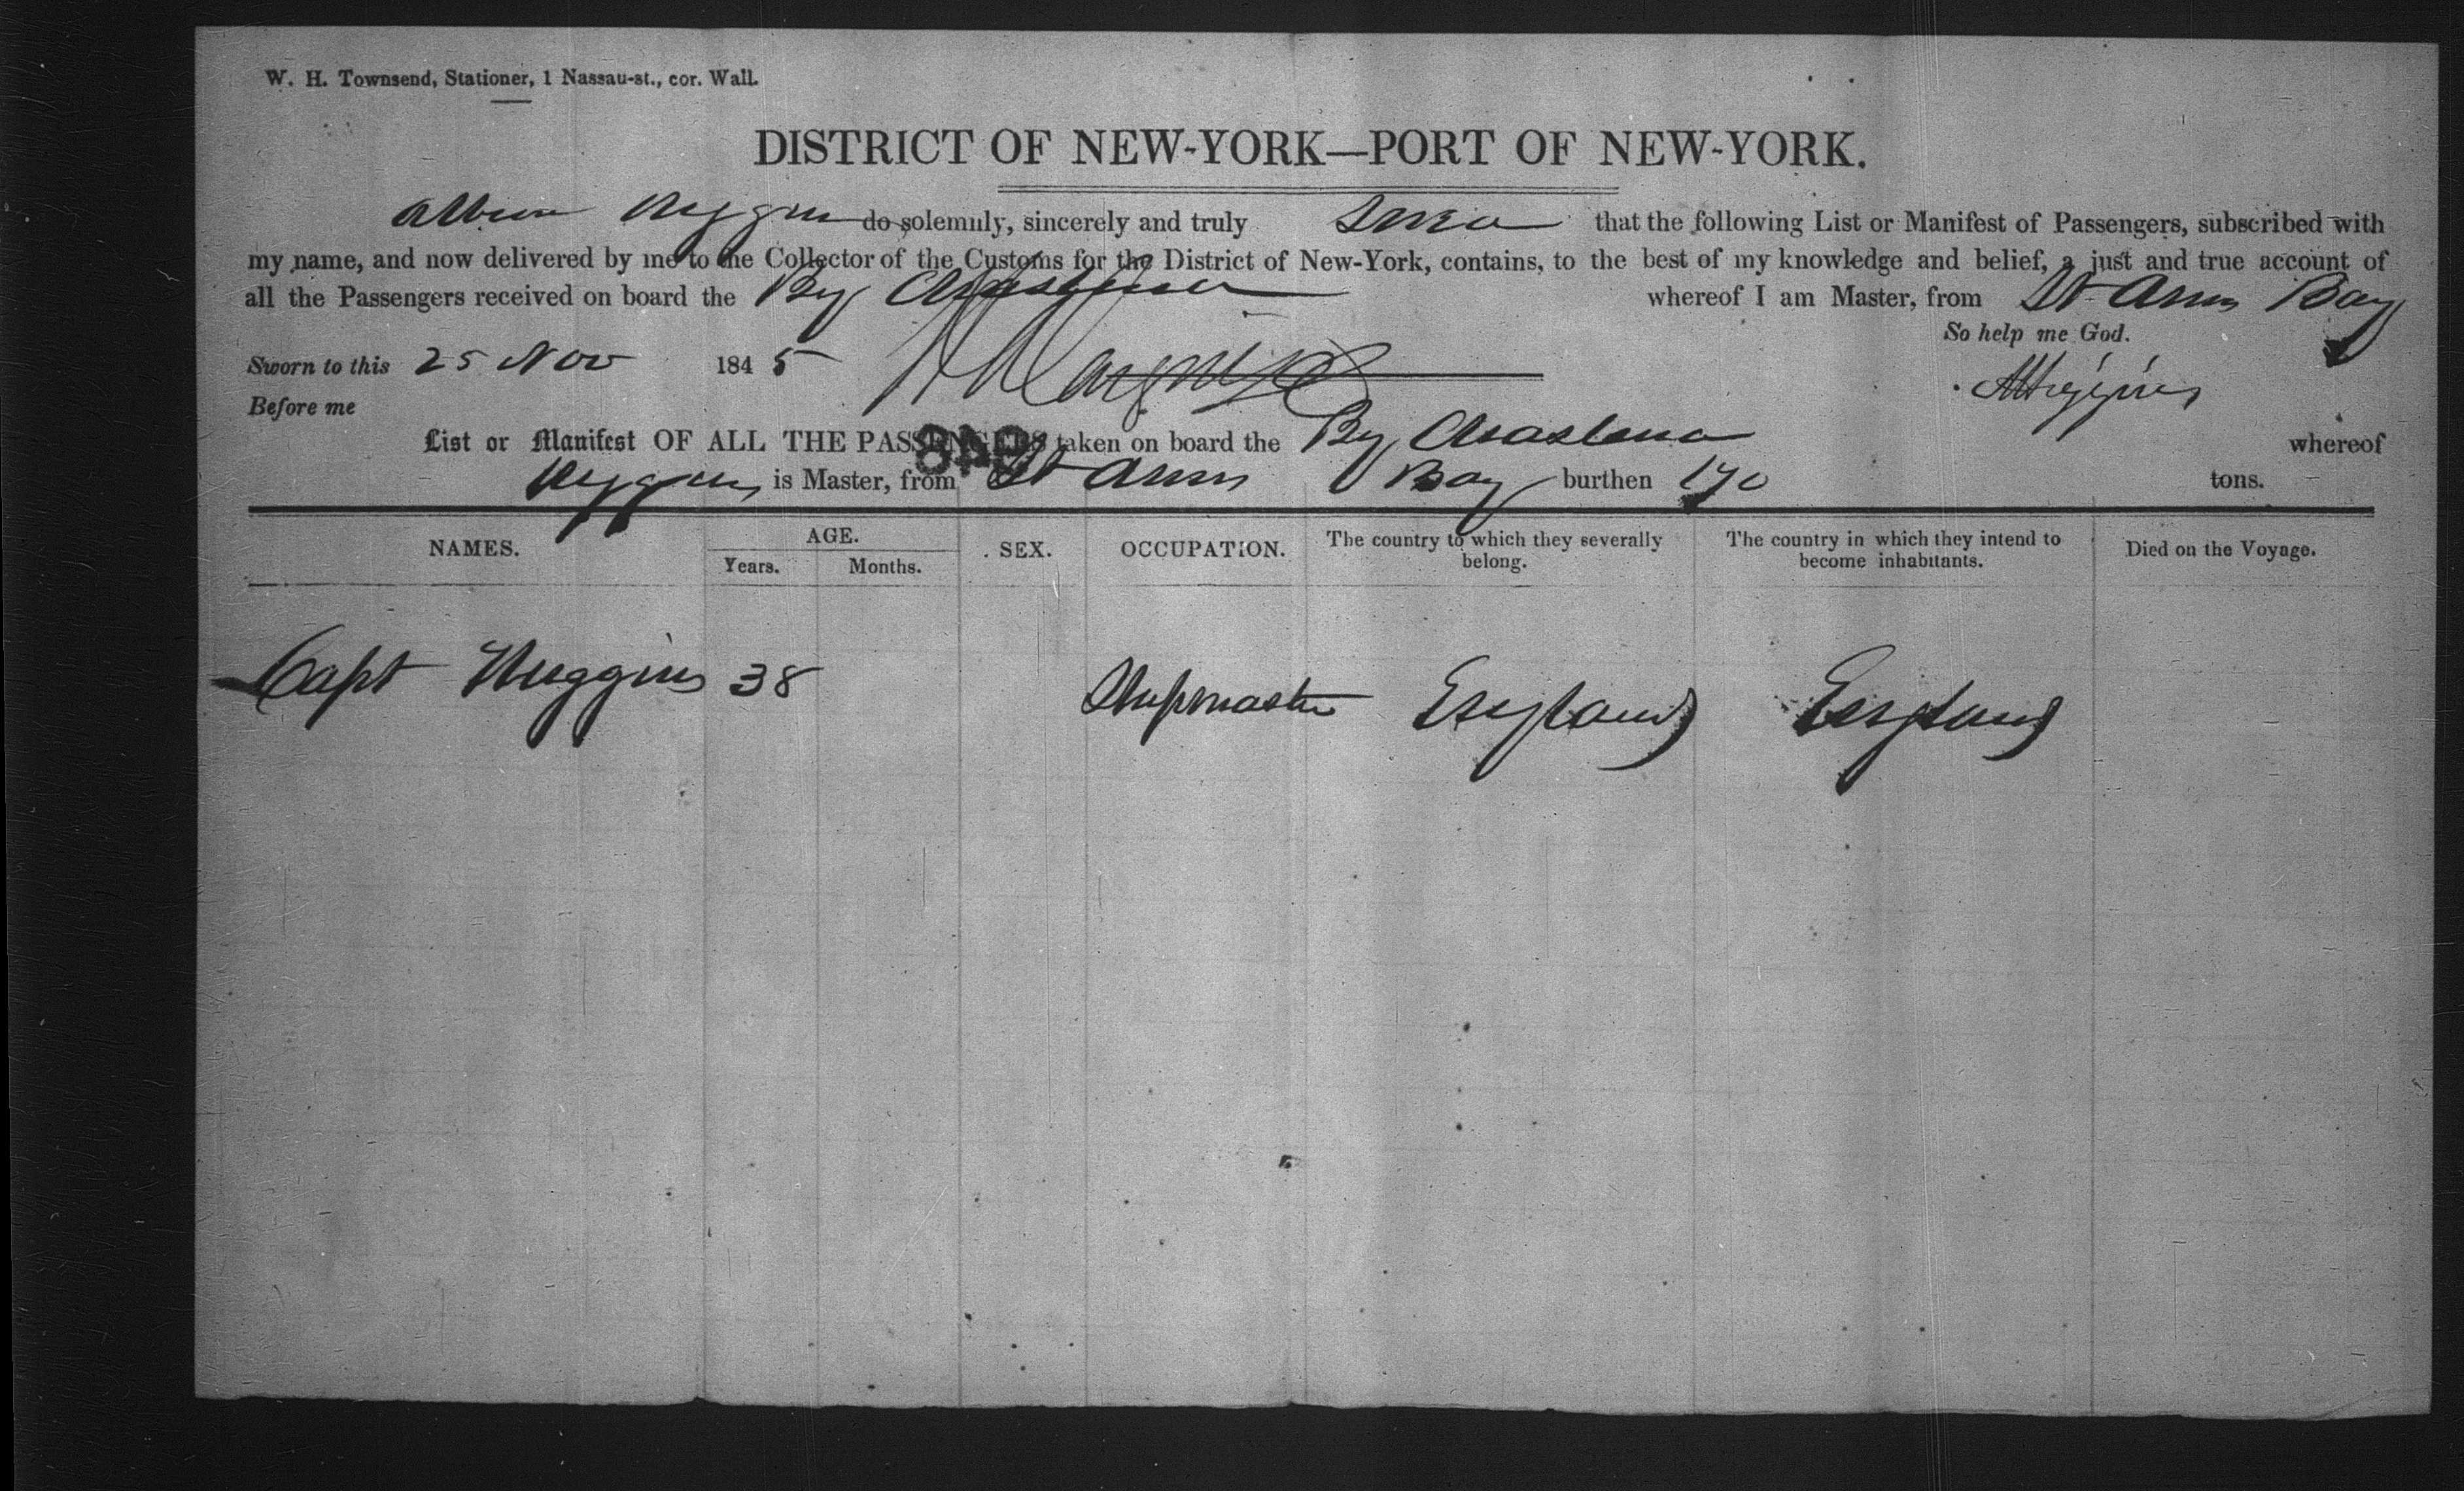 W. H. Townsend, Stationer, 1 Nassau-st., cor. Wall.
DISTRICT OF NEW-YORK—PORT OF NEW-YORK.
do solemnly, sincerely and truly that the following List or Manifest of Passengers, subscribed with
my name, and now delivered by me to the Collector of the Customs for the District of New-York, contains, to the best of my knowledge and belief, a just and true account of
all the Passengers received on board the whereof I am Master, from St Anns Bay
So help me God.
Sworn to this 25 Nov 1845
Before me
List or Manifest OF ALL THE PASSENGERS taken on board the whereof
is Master, from St Anns Bay burthen 170 tons.
NAMES. AGE. SEX. OCCUPATION. The country to which they severally belong. The country in which they intend to become inhabitants. Died on the Voyage.
Years. Months.
Capt Huggins 38 Shipmaster England England